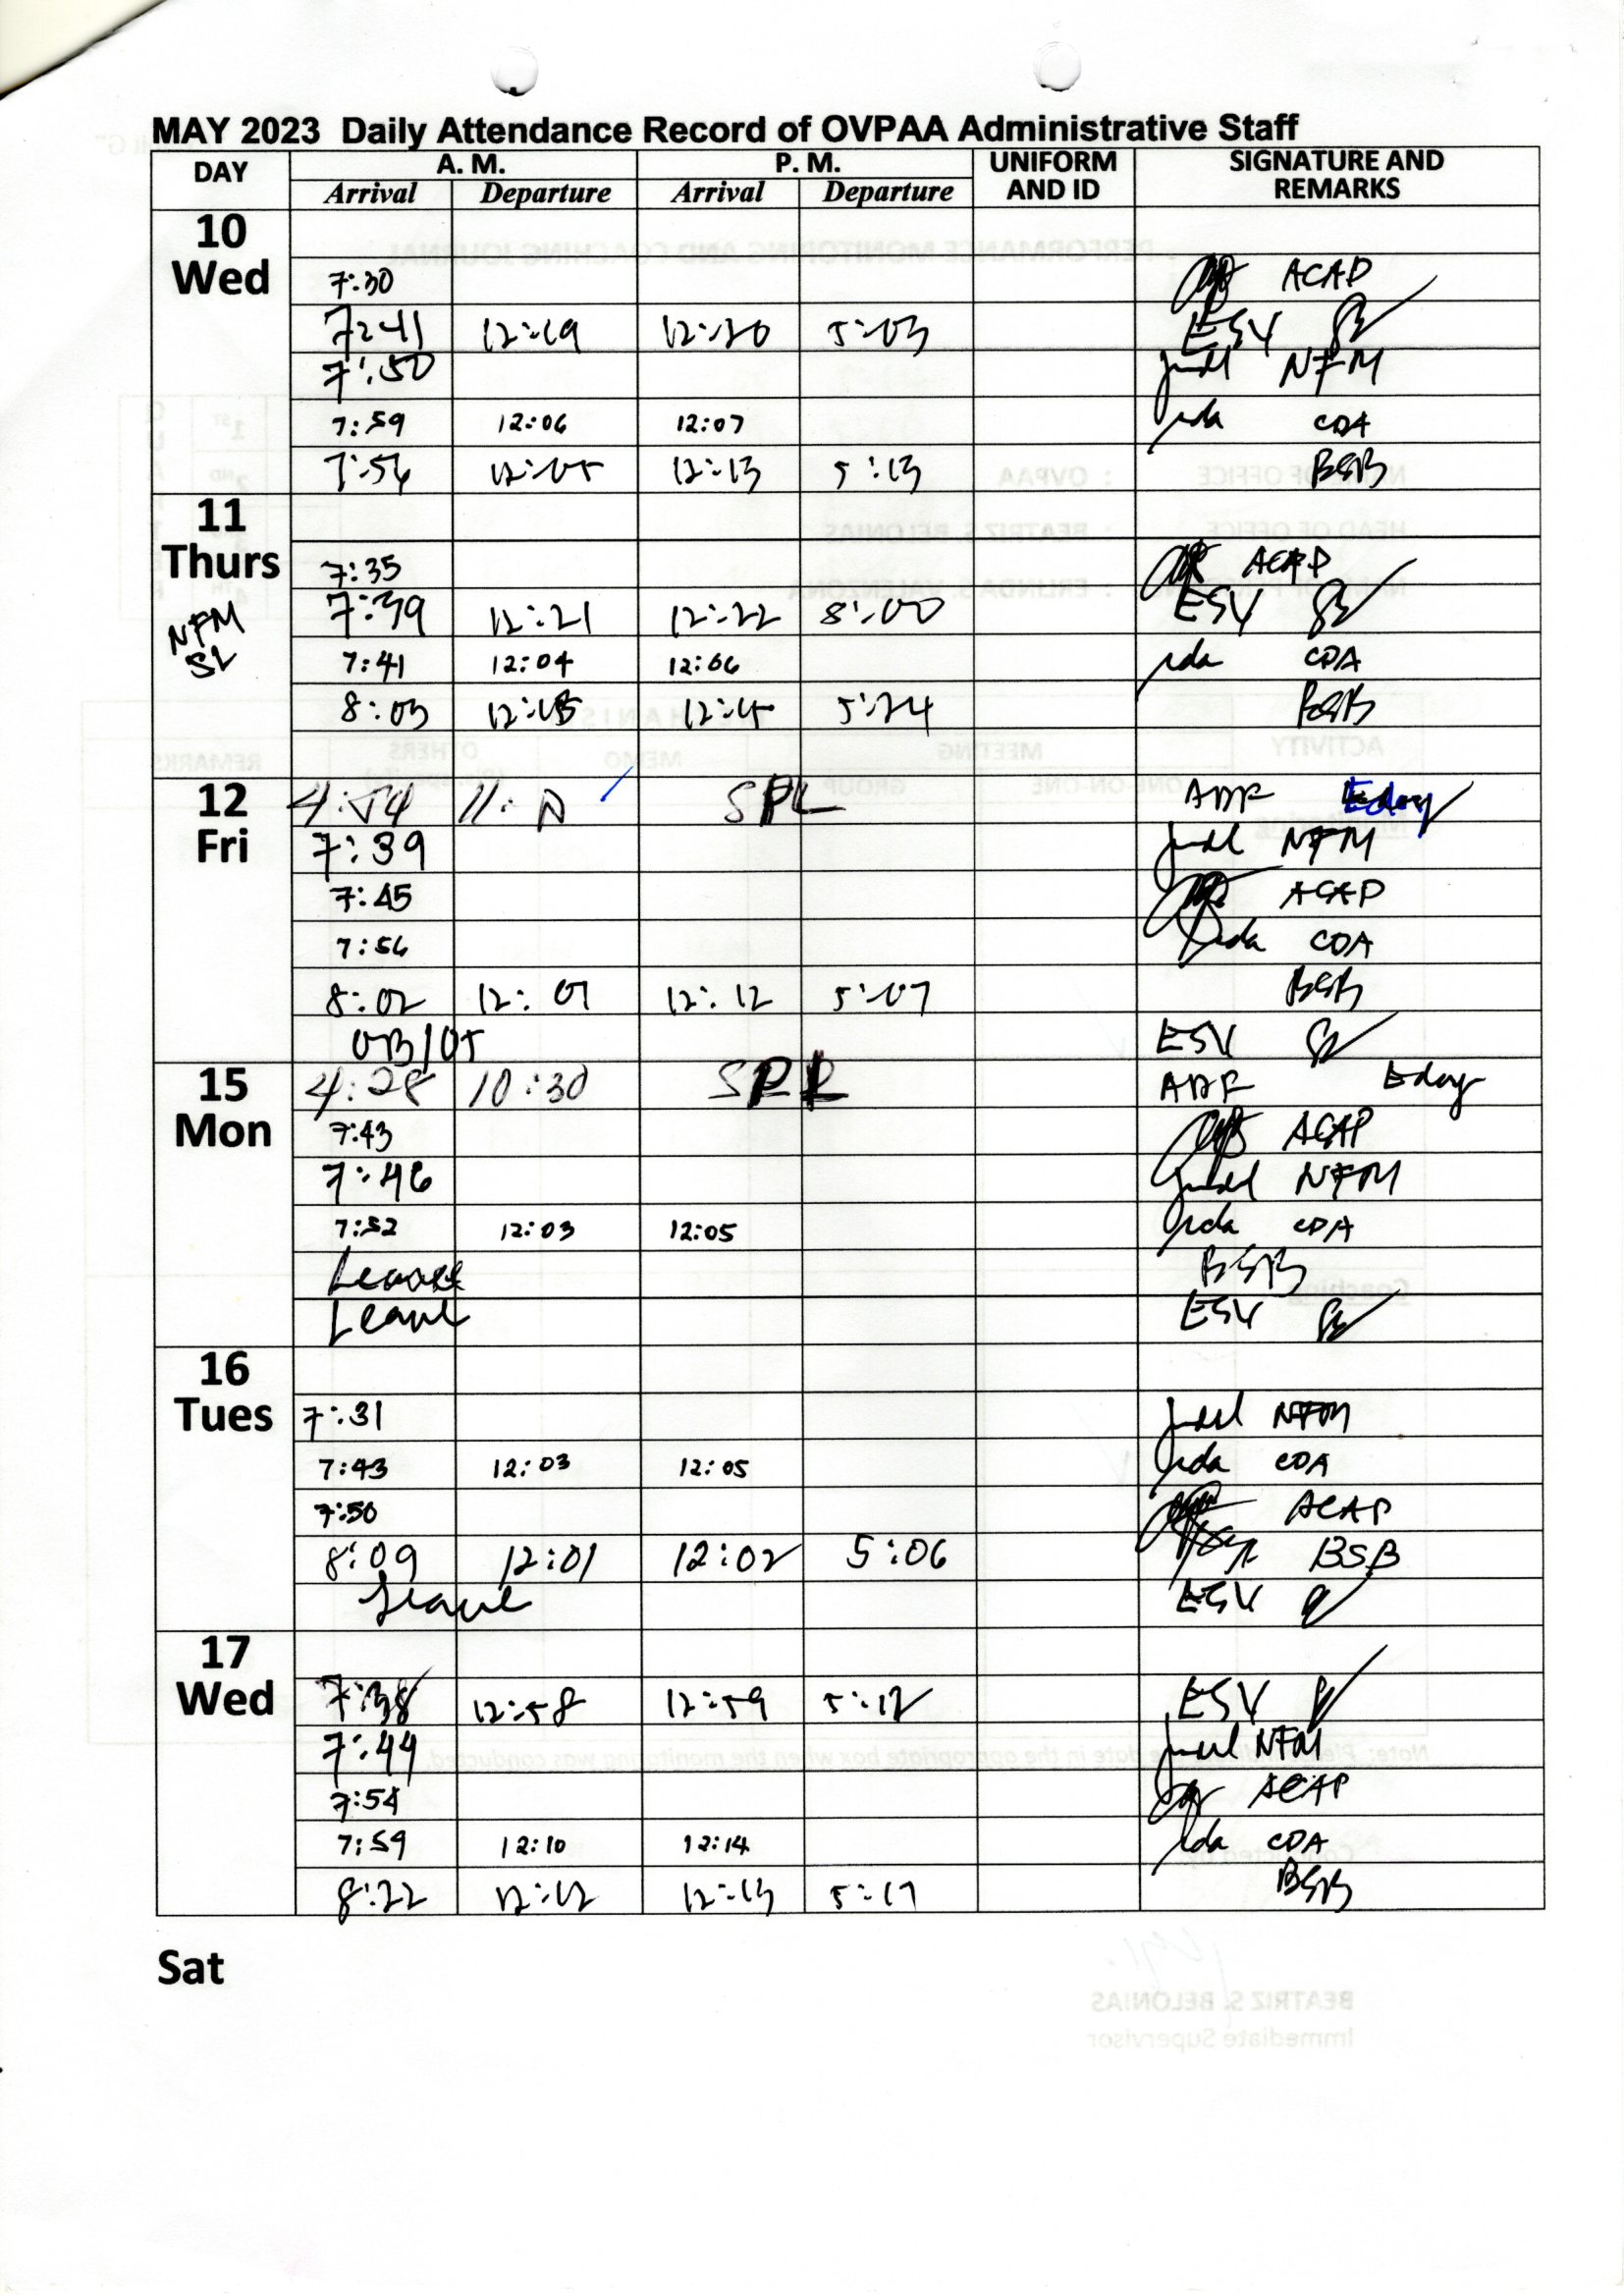 MAY 2023 Daily Attendance Record of OVPAA Administrative Staff
DAY A. M. P. M. UNIFORM AND ID SIGNATURE AND REMARKS
Arrival Departure Arrival Departure
10 Wed
7:30 ACAP
7:41 12:19 12:20 5:03 ESV
7:50 NFM
7:59 12:06 12:07 CDA
7:56 12:05 12:13 5:13 BSB
11 Thurs
NFM SL
7:35 ACAP
7:39 12:21 12:22 8:00 ESV
7:41 12:04 12:06 CDA
8:03 5:24 BSB
12 Fri
4:54 SPL ADF Eday
7:39 NFM
7:45 ACAP
7:56 CDA
8:02 12:07 12:12 5:07 BSB
OB/OT ESV
15 Mon
4:28 10:30 SPL ADF Eday
7:43 ACAP
7:46 NFM
7:52 12:03 12:05 CDA
Leave BSB
Leave ESV
16 Tues
7:31 NFM
7:43 12:03 12:05 CDA
7:50 ACAP
8:09 12:01 12:02 5:06 BSB
Leave ESV
17 Wed
7:38 12:58 12:59 5:12 ESV
7:44 NFM
7:54 ACAP
7:59 12:10 12:14 CDA
8:22 12:12 12:13 5:17 BSB
Sat